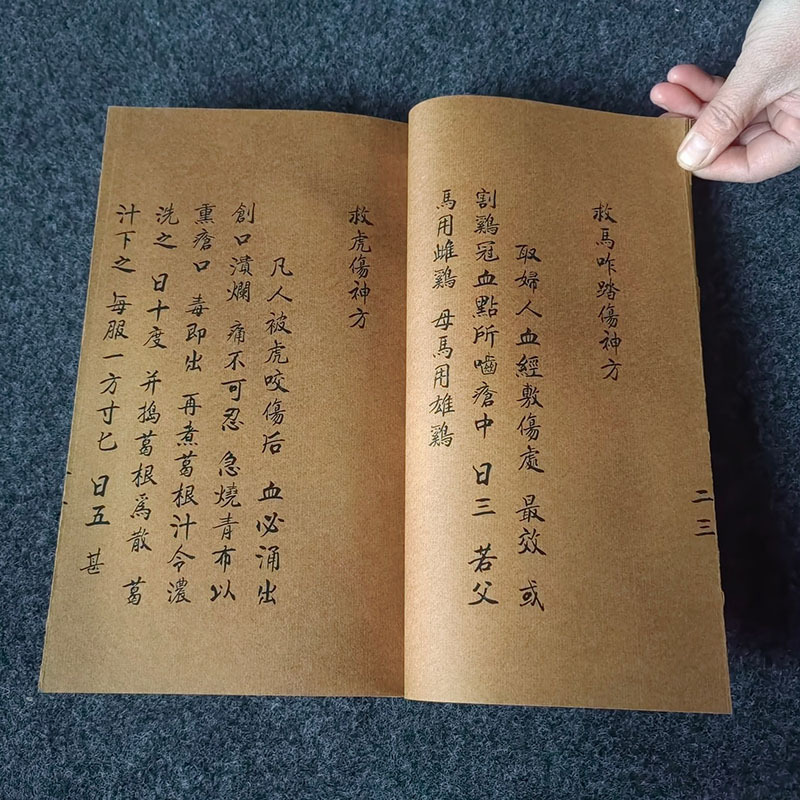 救馬咋踏傷神方
取婦人血經敷傷處 最效 或
割鷄冠血點所嚙瘡中 日三 若父
馬用雌鷄 母馬用雄鷄
二三
救虎傷神方
凡人被虎咬傷后 血必涌出
創口潰爛 痛不可忍 急燒青布以
熏瘡口 毒即出 再煮葛根汁令濃
洗之 日十度 并搗葛根爲散 葛
汁下之 每服一方寸匕 日五 甚